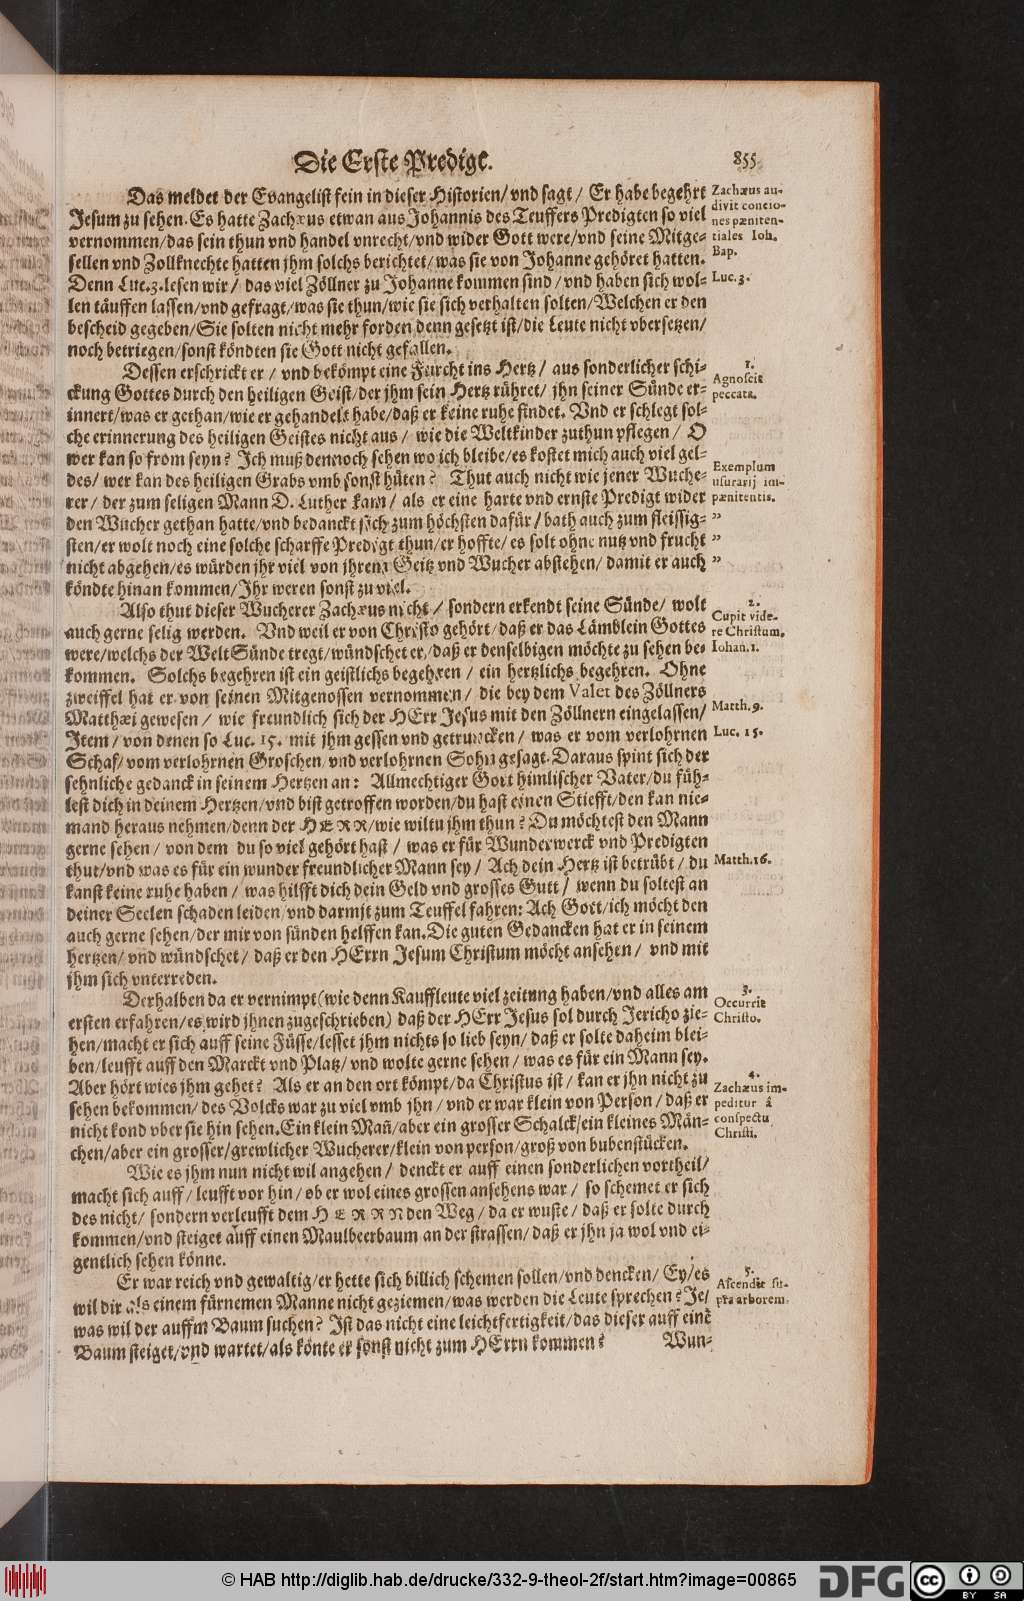 Die Erste Predigt.
855
Das meldet der Evangelist fein in dieser Historien/ vnd sagt / Er habe begehrt
Jesum zu sehen. Es hatte Zachæus etwan aus Johannis des Teuffers Predigten so viel
vernommen/das sein thun vnd handel vnrecht/vnd wider Gott were/vnd seine Mitge-
sellen vnd Zollknechte hatten jhm solchs berichtet/was sie von Johanne gehöret hatten.
Denn Luc.3.lesen wir / das viel Zöllner zu Johanne kommen sind / vnd haben sich wol-
len täuffen lassen/vnd gefragt/was sie thun/wie sie sich verhalten solten/Welchen er den
bescheid gegeben/Sie solten nicht mehr forden denn gesetzt ist/die Leute nicht vbersetzen/
noch betriegen/sonst köndten sie Gott nicht gefallen.
Dessen erschrickt er / vnd bekömpt eine Furcht ins Hertz/ aus sonderlicher schi-
ckung Gottes durch den heiligen Geist/der jhm sein Hertz rühret/ jhn seiner Sünde er-
innert/was er gethan/wie er gehandelt habe/daß er keine ruhe findet. Vnd er schlegt sol-
che erinnerung des heiligen Geistes nicht aus / wie die Weltkinder zuthun pflegen / O
wer kan so from seyn? Ich muß dennoch sehen wo ich bleibe/es kostet mich auch viel gel-
des/ wer kan des heiligen Grabs vmb sonst hüten? Thut auch nicht wie jener Wuche-
rer / der zum seligen Mann D. Luther kam / als er eine harte vnd ernste Predigt wider
den Wucher gethan hatte/vnd bedanckt sich zum höchsten dafür / bath auch zum fleissig-
sten/er wolt noch eine solche scharffe Predigt thun/er hoffte/ es solt ohne nutz vnd frucht
nicht abgehen/es würden jhr viel von jhrem Geitz vnd Wucher abstehen/ damit er auch
köndte hinan kommen/Ihr weren sonst zu viel.
Also thut dieser Wucherer Zachæus nicht / sondern erkendt seine Sünde/ wolt
auch gerne selig werden. Vnd weil er von Christo gehört/daß er das Lämblein Gottes
were/welchs der Welt Sünde tregt/wündschet er/daß er denselbigen möchte zu sehen be-
kommen. Solchs begehren ist ein geistlichs begehren / ein hertzlichs begehren. Ohne
zweiffel hat er von seinen Mitgenossen vernommen/ die bey dem Valet des Zöllners
Matthæi gewesen / wie freundlich sich der HErr Jesus mit den Zöllnern eingelassen/
Item / von denen so Luc. 15. mit jhm gessen vnd getruncken / was er vom verlohrnen
Schaf/ vom verlohrnen Groschen/ vnd verlohrnen Sohn gesagt. Daraus spint sich der
sehnliche gedanck in seinem Hertzen an: Allmechtiger Gott himlischer Vater/du füh-
lest dich in deinem Hertzen/vnd bist getroffen worden/du hast einen Stiefft/den kan nie-
mand heraus nehmen/denn der HERR/wie wiltu jhm thun? Du möchtest den Mann
gerne sehen / von dem du so viel gehört hast / was er für Wunderwerck vnd Predigten
thut/vnd was es für ein wunder freundlicher Mann sey / Ach dein Hertz ist betrübt / du
kanst keine ruhe haben / was hilfft dich dein Geld vnd grosses Gutt / wenn du soltest an
deiner Seelen schaden leiden/vnd darmit zum Teuffel fahren: Ach Gott/ich möcht den
auch gerne sehen/der mir von sünden helffen kan. Die guten Gedancken hat er in seinem
hertzen/ vnd wündschet/ daß er den HErrn Jesum Christum möcht ansehen / vnd mit
jhm sich vnterreden.
Derhalben da er vernimpt (wie denn Kauffleute viel zeitung haben/vnd alles am
ersten erfahren/es wird jhnen zugeschrieben) daß der HErr Jesus sol durch Jericho zie-
hen/macht er sich auff seine Füsse/lesset jhm nichts so lieb seyn/ daß er solte daheim blei-
ben/leufft auff den Marckt vnd Platz/ vnd wolte gerne sehen / was es für ein Mann sey.
Aber hört wies jhm gehet? Als er an den ort kömpt/da Christus ist / kan er jhn nicht zu
sehen bekommen/ des Volcks war zu viel vmb jhn / vnd er war klein von Person / daß er
nicht kond vber sie hin sehen. Ein klein Mañ/aber ein grosser Schalck/ein kleines Män-
chen/aber ein grosser/grewlicher Wucherer/klein von person/groß von bubenstücken.
Wie es jhm nun nicht wil angehen / denckt er auff einen sonderlichen vortheil/
macht sich auff / leufft vor hin / ob er wol eines grossen ansehens war / so schemet er sich
des nicht/ sondern verleufft dem HERRN den Weg / da er wuste / daß er solte durch
kommen/vnd steiget auff einen Maulbeerbaum an der strassen/ daß er jhn ja wol vnd ei-
gentlich sehen könne.
Er war reich vnd gewaltig/er hette sich billich schemen sollen/vnd dencken/ Ey/es
wil dir als einem fürnemen Manne nicht geziemen/was werden die Leute sprechen? Je/
was wil der auffm Baum suchen? Ist das nicht eine leichtfertigkeit/das dieser auff einē
Baum steiget/vnd wartet/als könte er sonst nicht zum HErrn kommen?
Wun-
Zachæus au-
divit concio-
nes pæniten-
tiales Ioh.
Bap.
Luc. 3.
1.
Agnoscit
peccata.
Exemplum
usurarij im-
pænitentis.
”
”
”
2.
Cupit vide-
re Christum.
Iohan. 1.
Matth. 9.
Luc. 15.
Matth. 16.
3.
Occurrit
Christo.
4.
Zachæus im-
peditur â
conspectu
Christi.
5.
Ascendit su-
pra arborem.
© HAB http://diglib.hab.de/drucke/332-9-theol-2f/start.htm?image=00865
DFG
cc
BY
SA